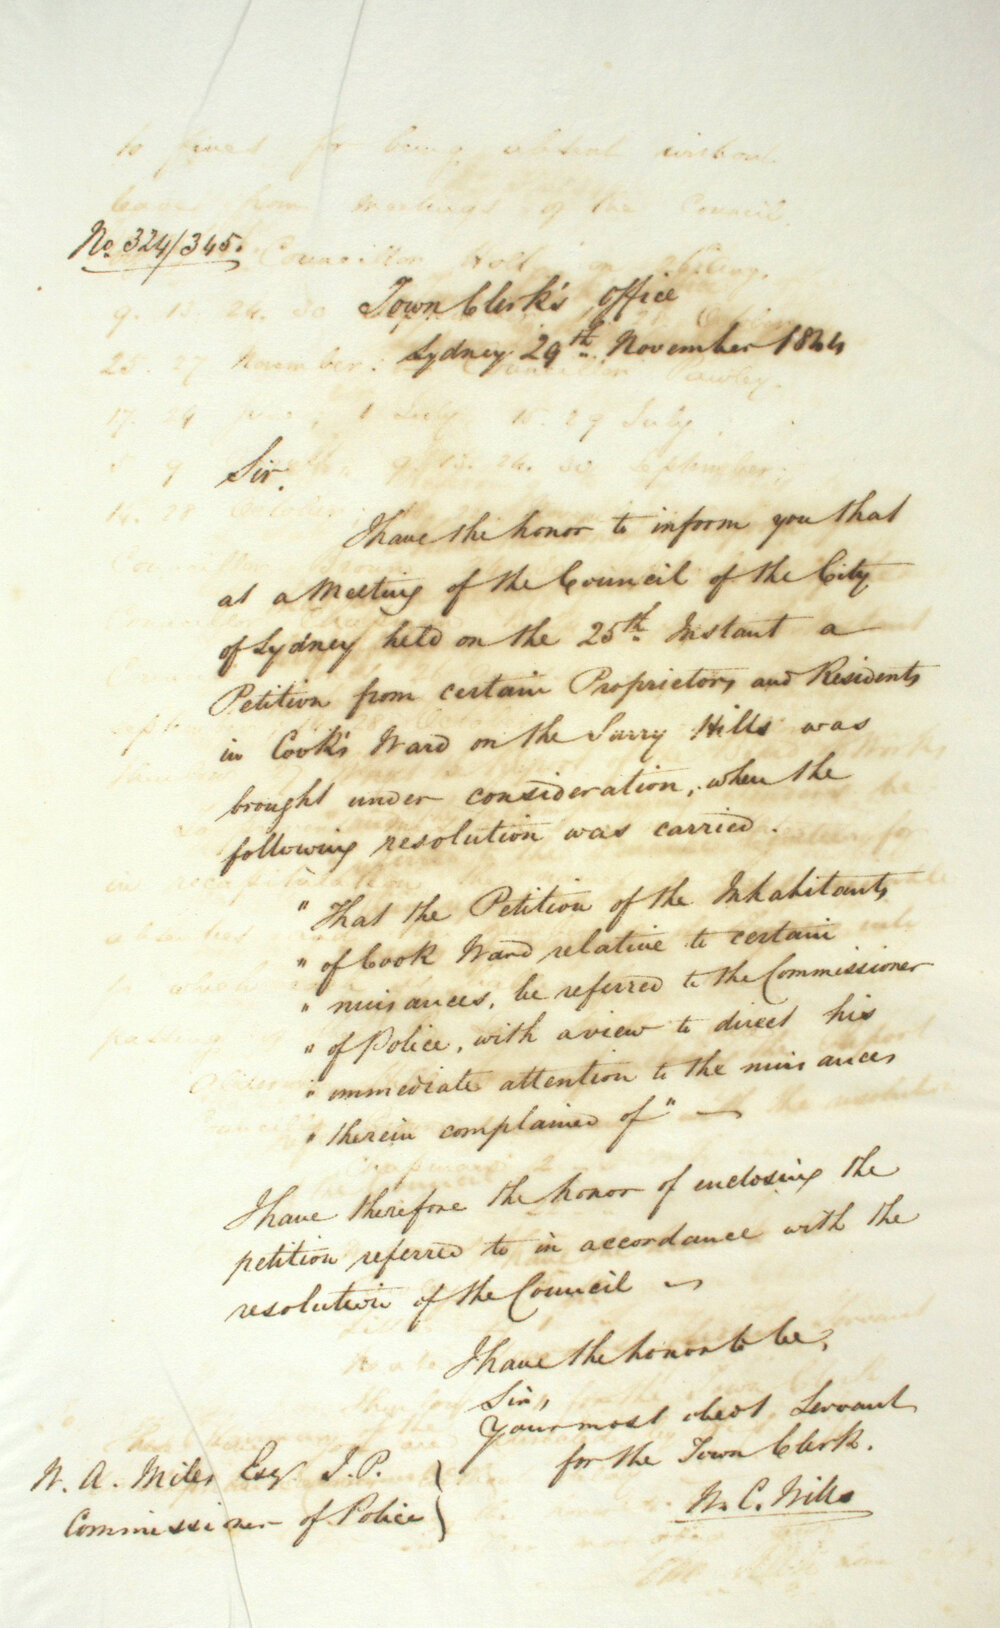 No. 324/345.
Town Clerk's Office
Sydney 29th November 1844
Sir.
I have the honor to inform you that
at a Meeting of the Council of the City
of Sydney held on the 25th Instant a
Petition from certain Proprietors and Residents
in Cook's Ward on the Surry Hills was
brought under consideration, when the
following resolution was carried.
" That the Petition of the Inhabitants
" of Cook Ward relative to certain
" nuisances, be referred to the Commissioner
" of Police, with a view to direct his
" immediate attention to the nuisances
" therein complained of" —
I have therefore the honor of enclosing the
petition referred to in accordance with the
resolution of the Council —
I have the honor to be,
Sir,
Your most obedt Servant
for the Town Clerk.
W. C. Wills
W. A. Miles Esqr J.P. }
Commissioner of Police }